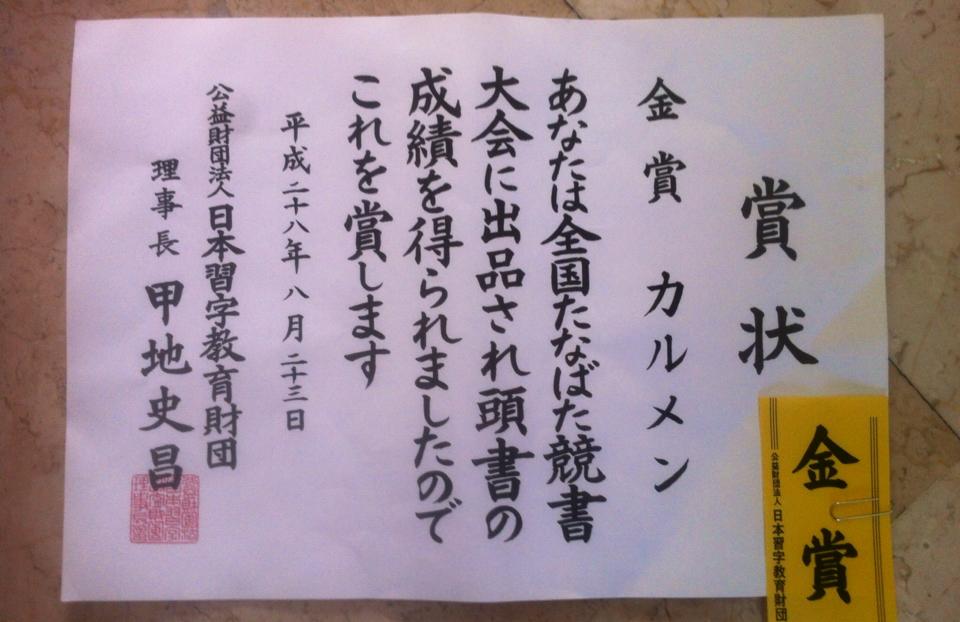 賞状
金賞 カルメン
あなたは全国たなばた競書
大会に出品され頭書の
成績を得られましたので
これを賞します
平成二十八年八月二十三日
公益財団法人日本習字教育財団
理事長 甲地史昌
金賞
公益財団法人 日本習字教育財団